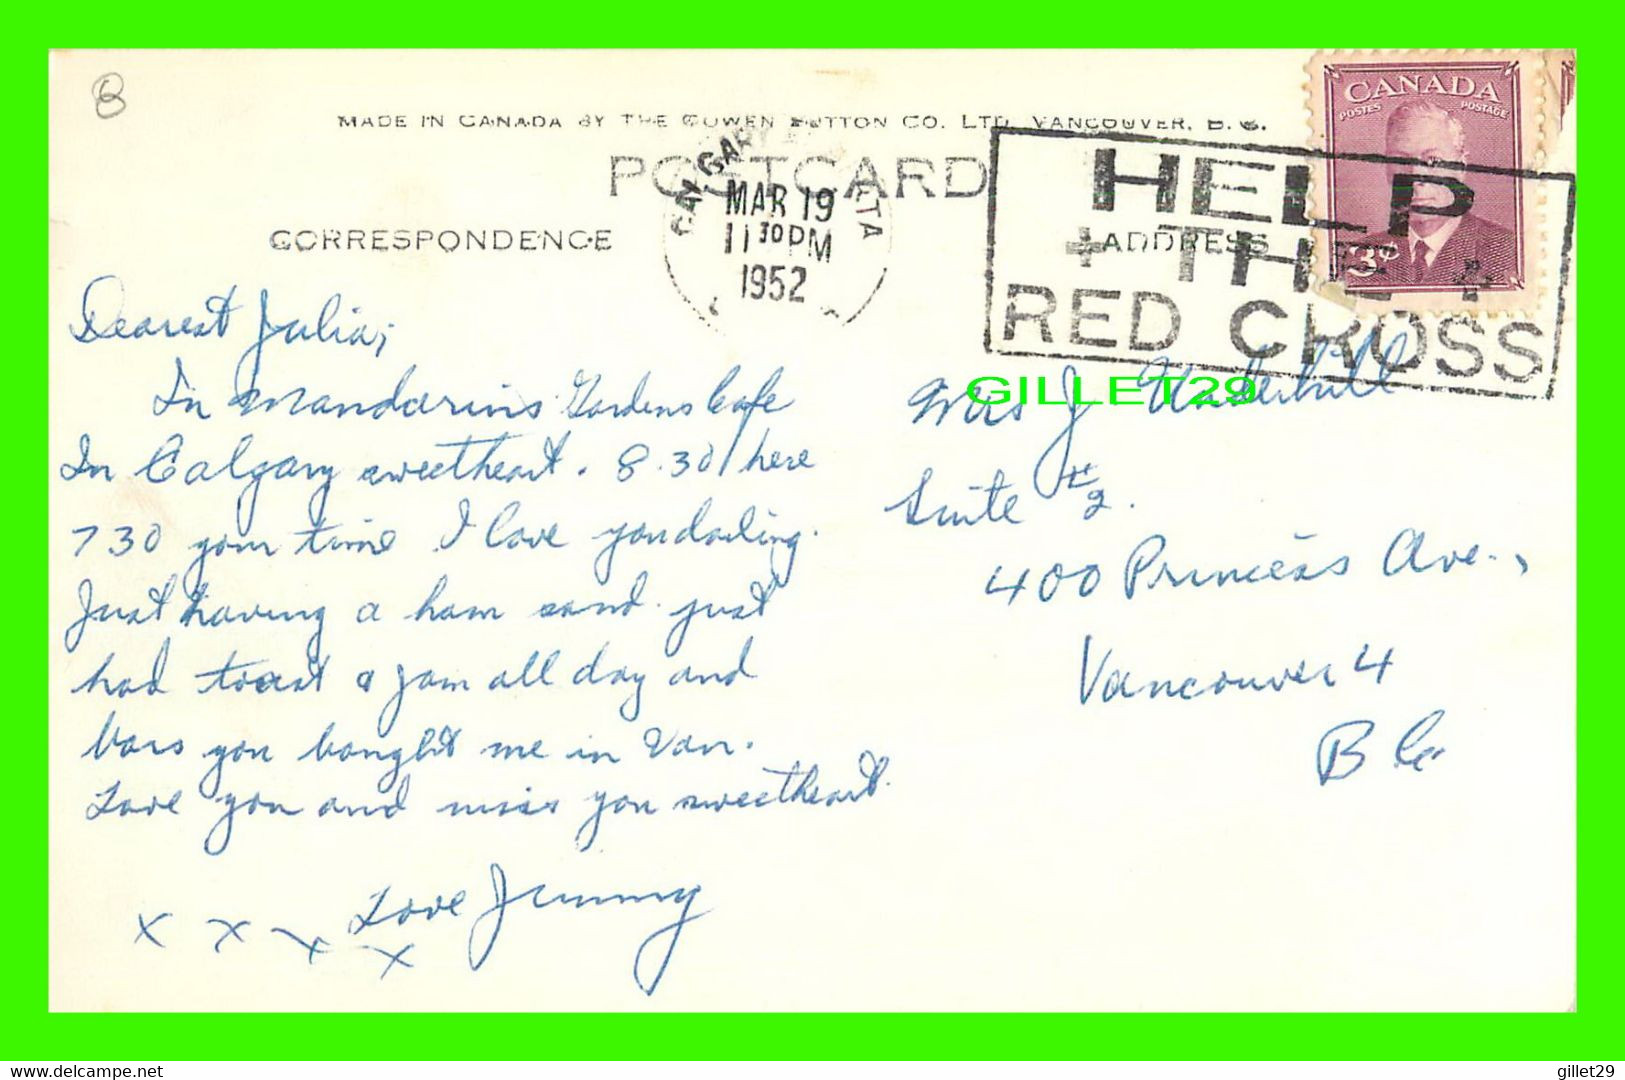 8
MADE IN CANADA BY THE GOWEN SUTTON CO. LTD. VANCOUVER, B. C.
POSTCARD
CORRESPONDENCE
ADDRESS
CALGARY ALTA
MAR 19
11 30 PM
1952
HELP
+ THE +
RED CROSS
CANADA
POSTES POSTAGE
3¢
GILLET29
Dearest Julia;
In Mandarins Gardens Cafe
In Calgary sweetheart. 8.30 here
730 your time I love you darling.
Just having a ham sand. just
had toast & jam all day and
bars you bought me in Van.
Love you and miss you sweetheart.
Love Jimmy
x x x x
Mrs J Underhill
Suite #2.
400 Princess Ave.,
Vancouver 4
B C
Delcampe.net
gillet29